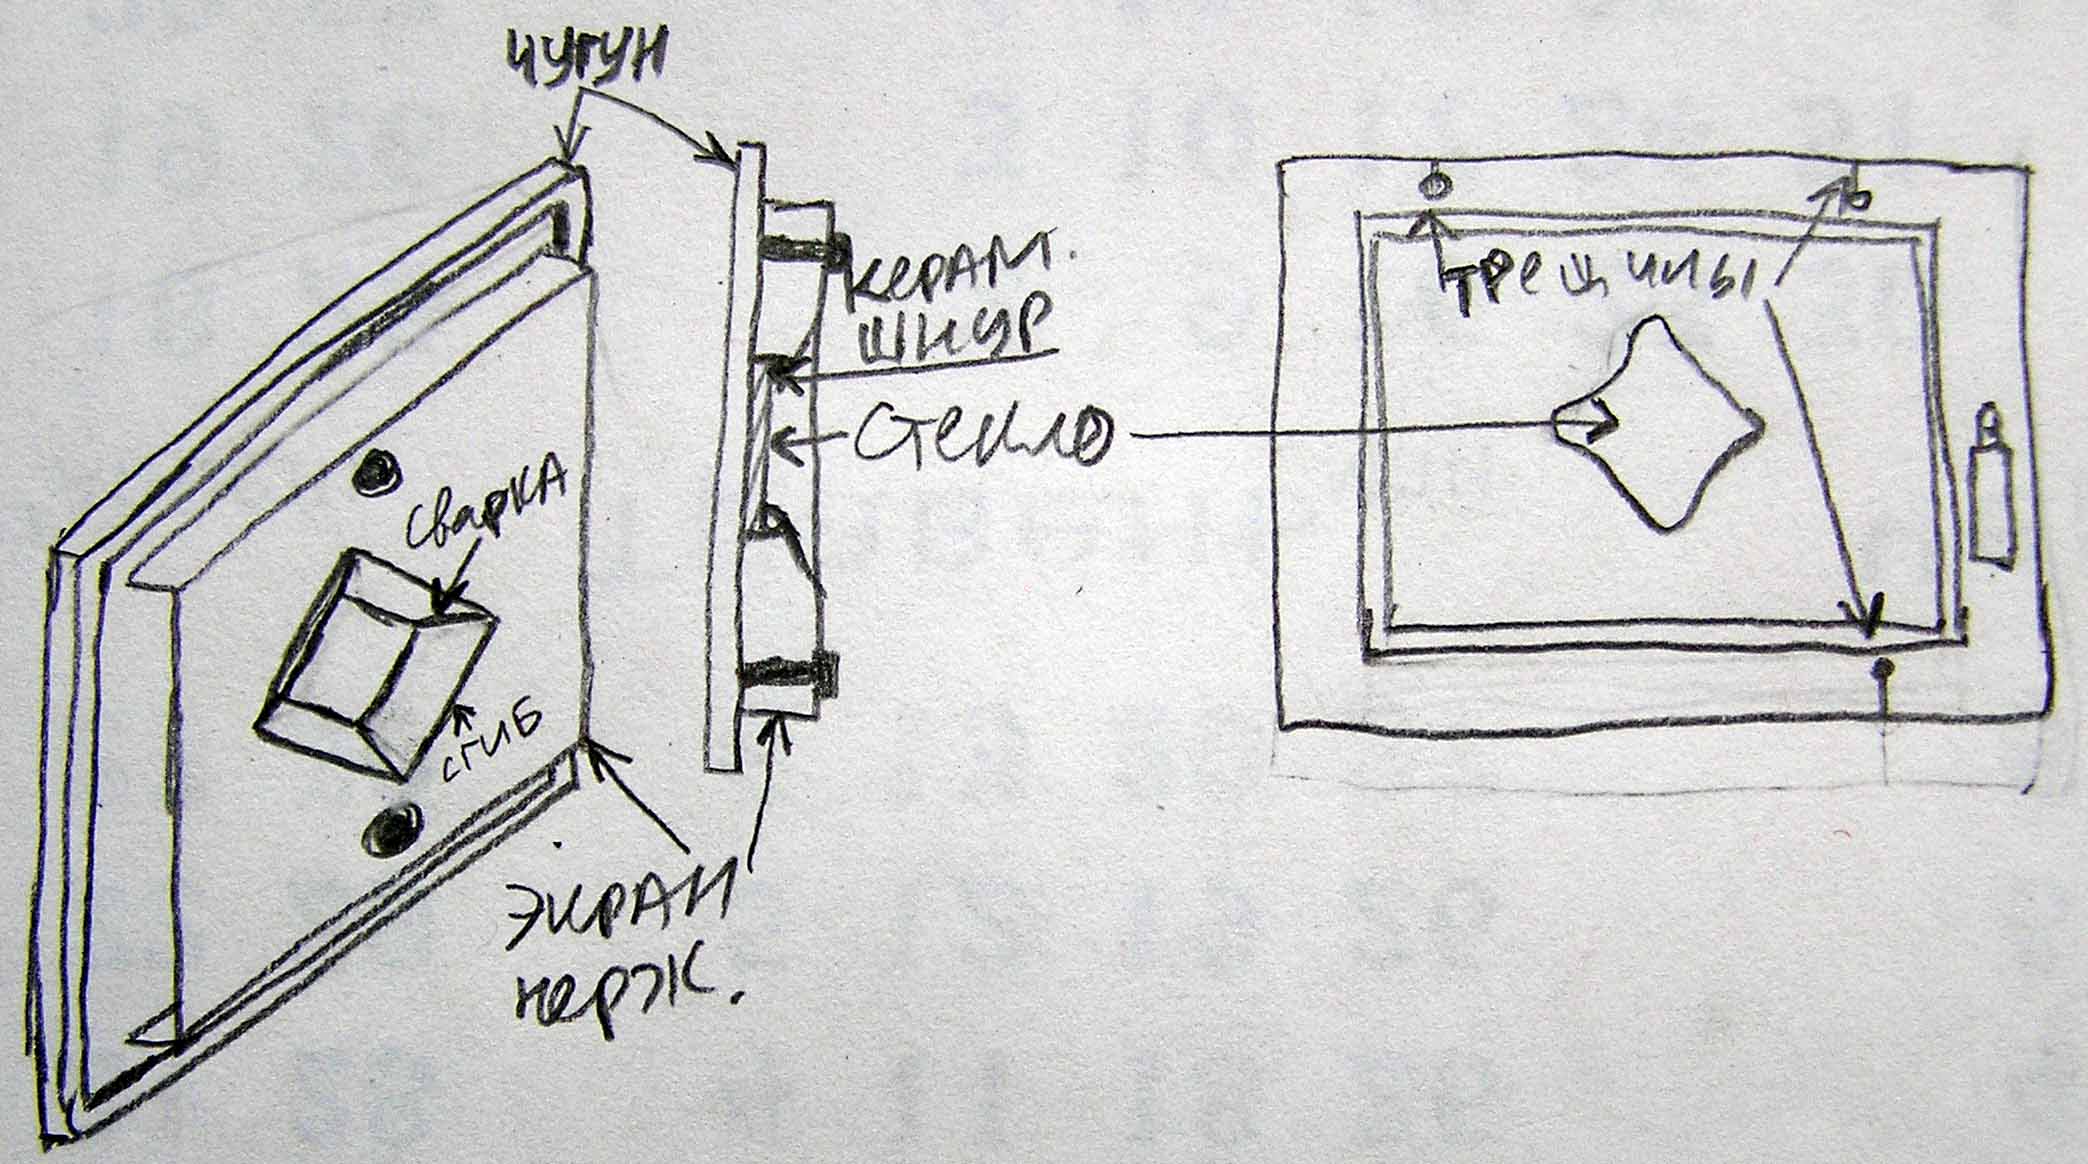 чугун
керам.
шнур
трещины
стекло
сварка
сгиб
экран
нерж.